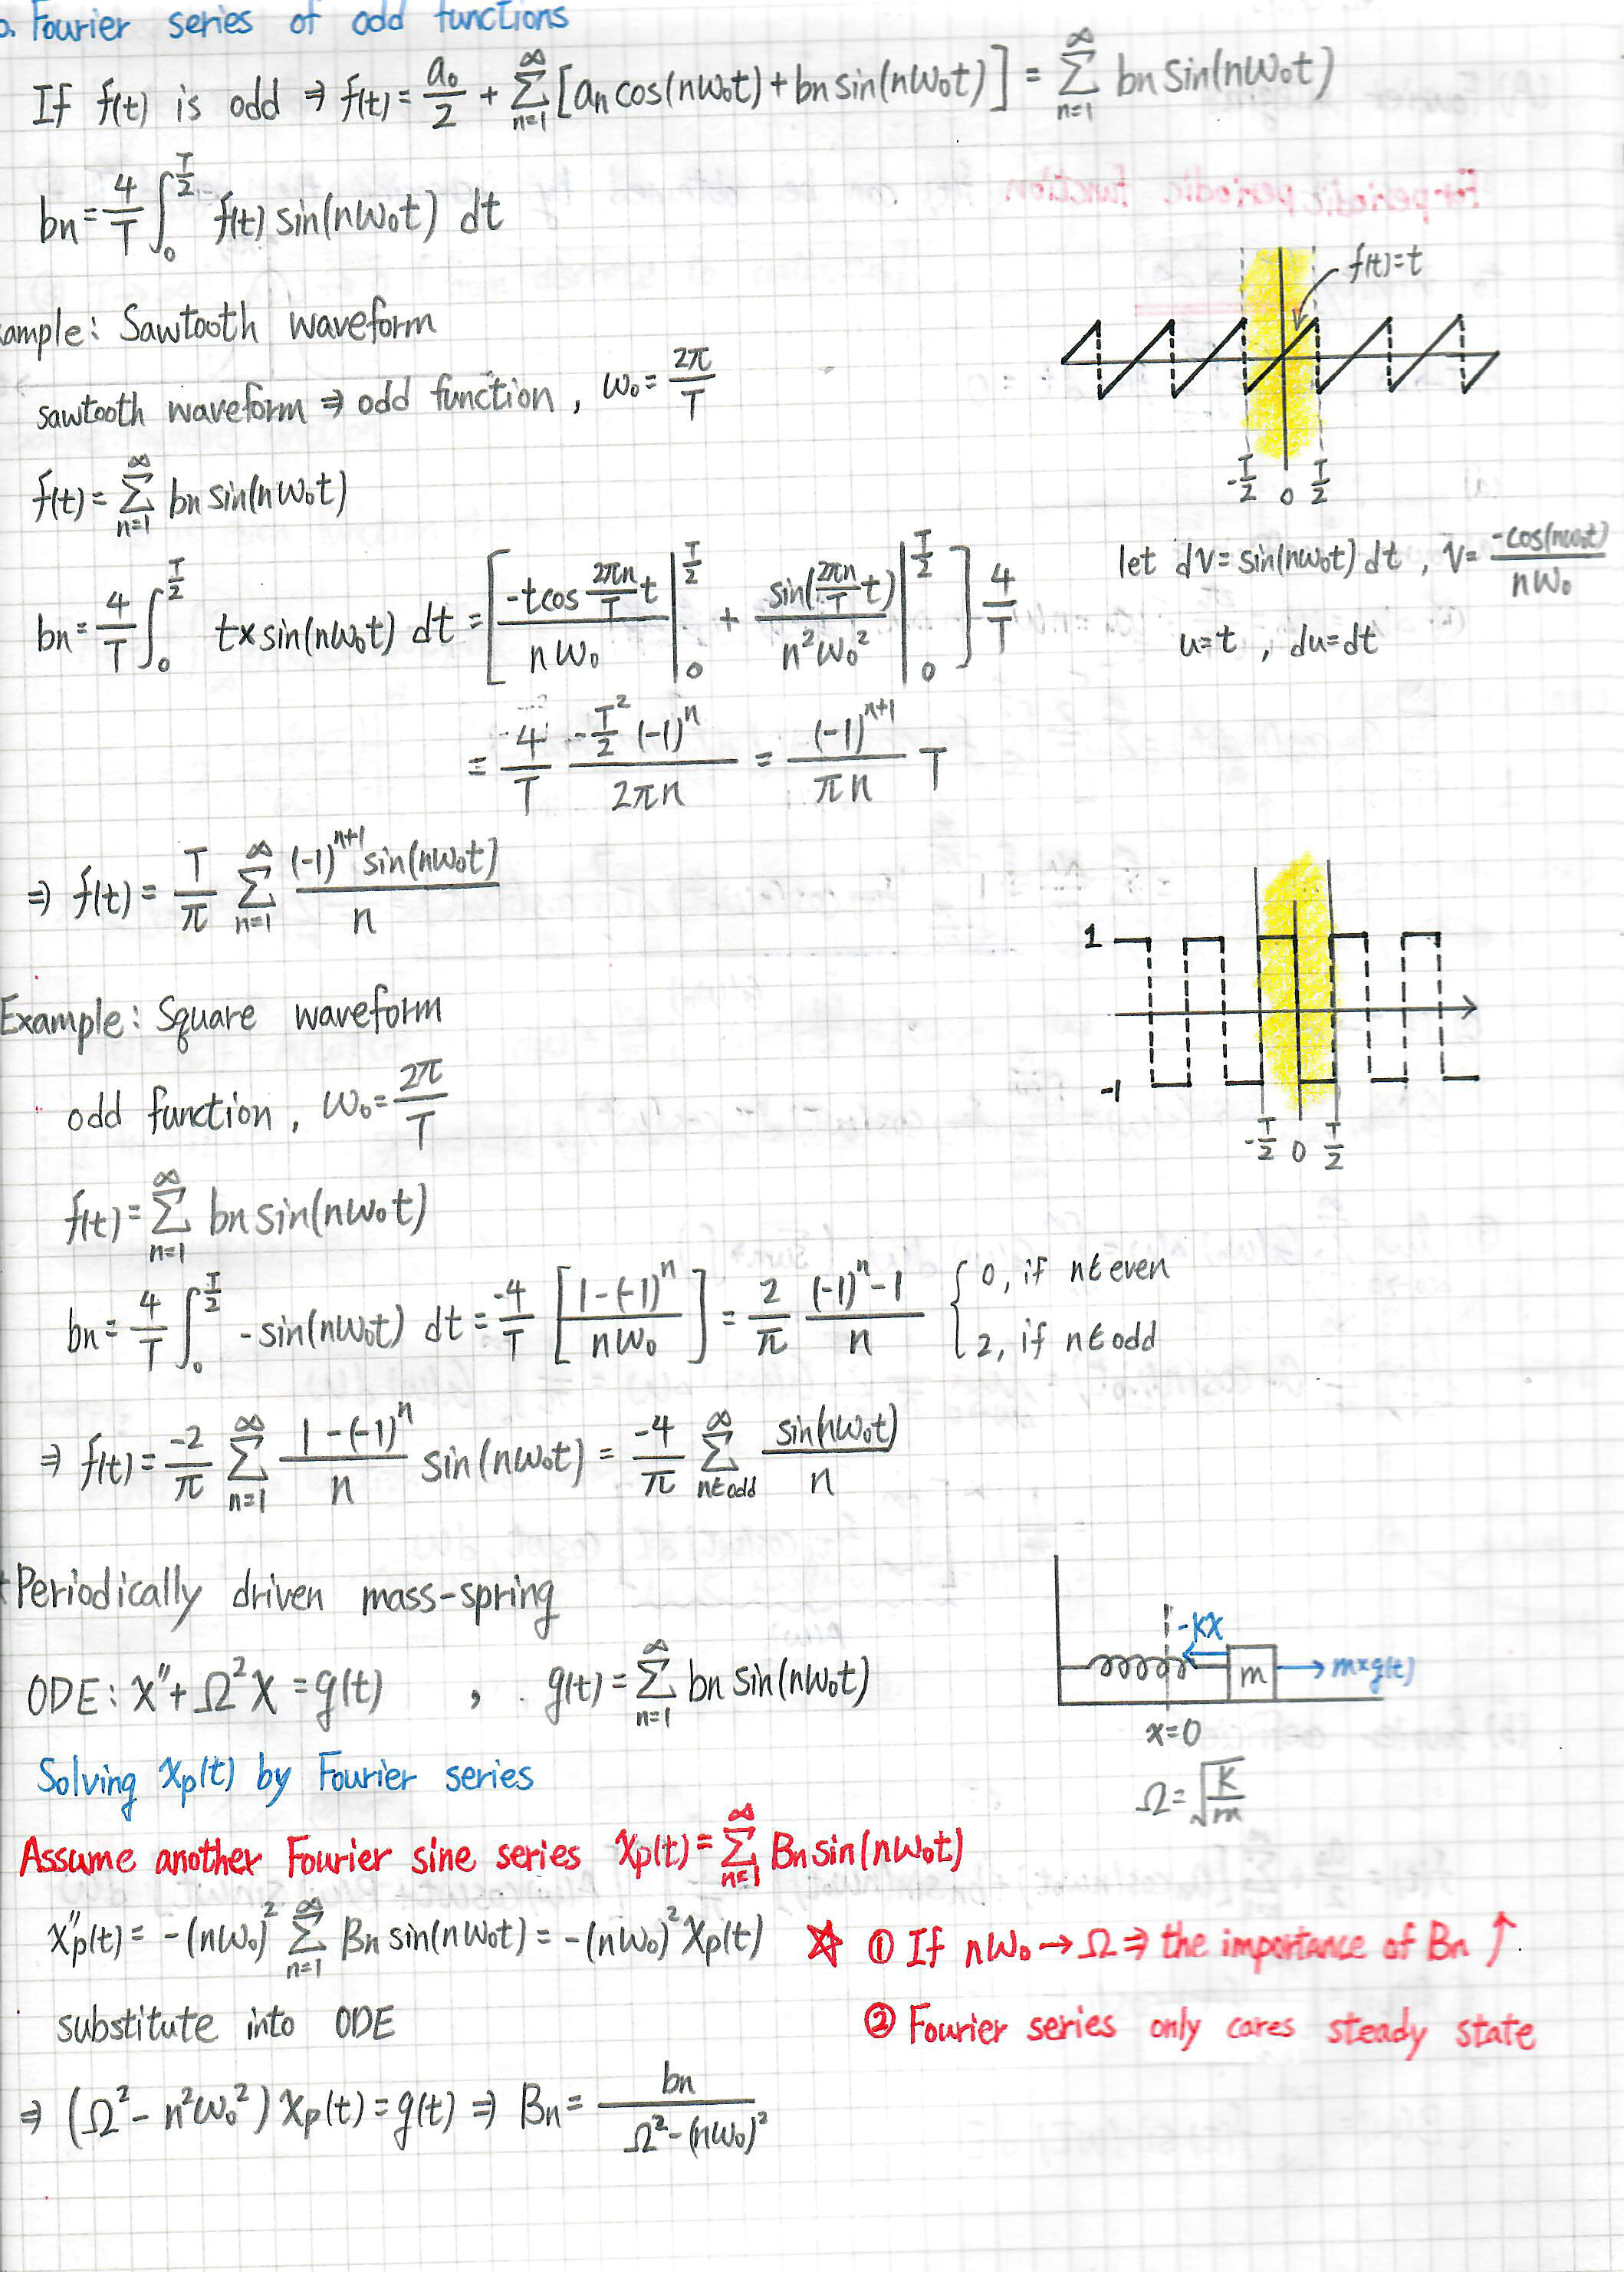 . Fourier series of odd functions
If f(t) is odd ⇒ f(t) = a₀/2 + ∑_{n=1}^{∞} [aₙ cos(nω₀t) + bₙ sin(nω₀t)] = ∑_{n=1}^{∞} bₙ sin(nω₀t)
bₙ = 4/T ∫₀^{T/2} f(t) sin(nω₀t) dt
f(t)=t
ample: Sawtooth waveform
sawtooth waveform ⇒ odd function, ω₀ = 2π/T
-T/2 0 T/2
f(t) = ∑_{n=1}^{∞} bₙ sin(nω₀t)
let dv = sin(nω₀t) dt, v = -cos(nω₀t)/nω₀
u=t, du=dt
bₙ = 4/T ∫₀^{T/2} t×sin(nω₀t) dt = [ -t cos (2πn/T) t / nω₀ |₀^{T/2} + sin((2πn/T) t) / n²ω₀² |₀^{T/2} ] 4/T
= 4/T · -T²/2 (-1)ⁿ / 2πn = (-1)ⁿ⁺¹ / πn T
⇒ f(t) = T/π ∑_{n=1}^{∞} (-1)ⁿ⁺¹ sin(nω₀t) / n
1
-1
-T/2 0 T/2
Example: Square waveform
odd function, ω₀ = 2π/T
f(t) = ∑_{n=1}^{∞} bₙ sin(nω₀t)
bₙ = 4/T ∫₀^{T/2} -sin(nω₀t) dt = -4/T [ 1-(-1)ⁿ / nω₀ ] = 2/π (-1)ⁿ-1 / n { 0, if n∈even
2, if n∈odd
⇒ f(t) = -2/π ∑_{n=1}^{∞} 1-(-1)ⁿ / n sin(nω₀t) = -4/π ∑_{n∈odd}^{∞} sin(nω₀t) / n
Periodically driven mass-spring
ODE: x″ + Ω²x = g(t) , g(t) = ∑_{n=1}^{∞} bₙ sin(nω₀t)
-kx
m
m×g(t)
x=0
Ω = √(k/m)
Solving xp(t) by Fourier series
Assume another Fourier sine series xp(t) = ∑_{n=1}^{∞} Bₙ sin(nω₀t)
x″p(t) = -(nω₀)² ∑_{n=1}^{∞} Bₙ sin(nω₀t) = -(nω₀)² xp(t)
☆ ① If nω₀ → Ω ⇒ the importance of Bₙ ↑
② Fourier series only cares steady state
substitute into ODE
⇒ (Ω² - n²ω₀²) xp(t) = g(t) ⇒ Bₙ = bₙ / Ω²-(nω₀)²